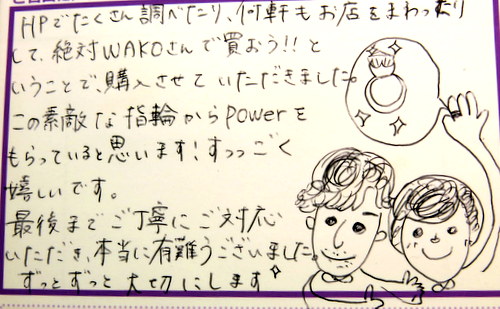 HPでたくさん調べたり、何軒もお店をまわったり
して、絶対WAKOさんで買おう!!と
いうことで、購入させていただきました。
この素敵な指輪からpowerを
もらっていると思います!すっっごく
嬉しいです。
最後までご丁寧にご対応
いただき、本当に有難うございました。
ずっとずっと大切にします